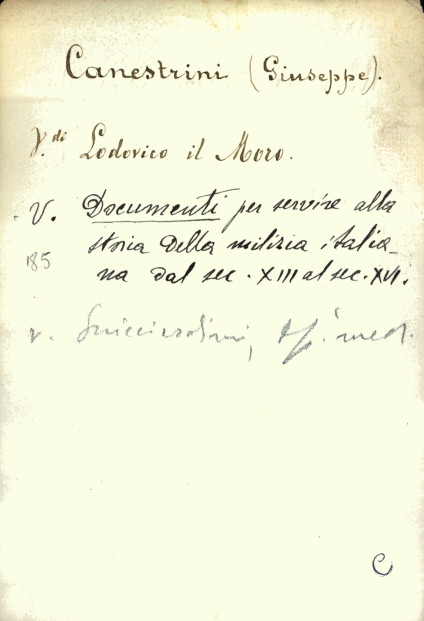 Canestrini (Giuseppe).
V.di Lodovico il Moro.
V. Documenti per servire alla
storia della milizia italia-
185
na dal sec. XIII al sec. XVI.
v. Guicciardini, Op. ined.
C